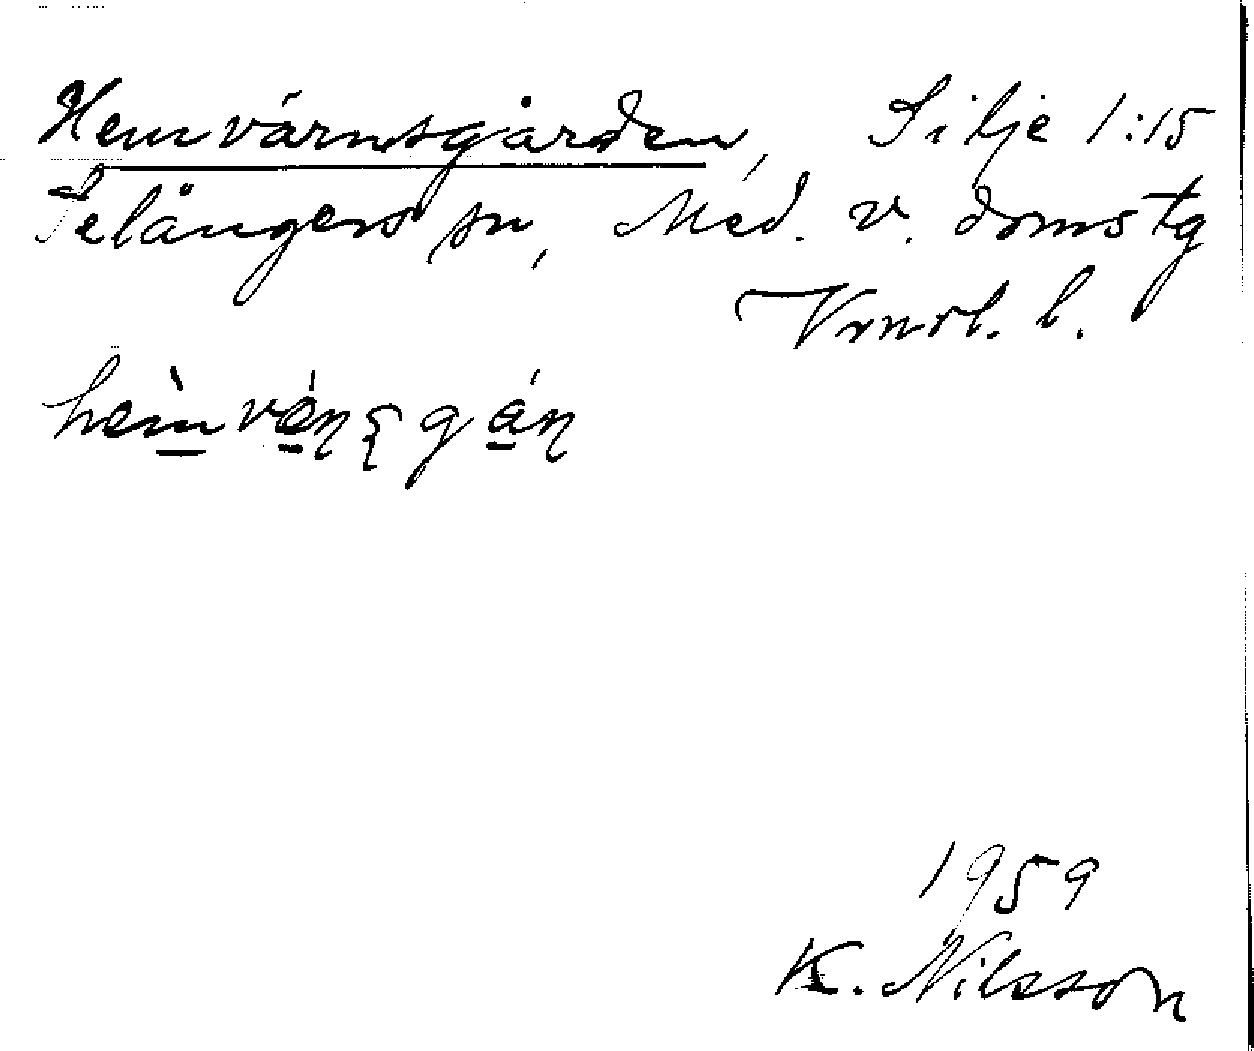 Hemvärnsgården, Silje 1:15
Selångers sn, Med. v. domstg
Vrnsl. l.
1959
K. Nilsson